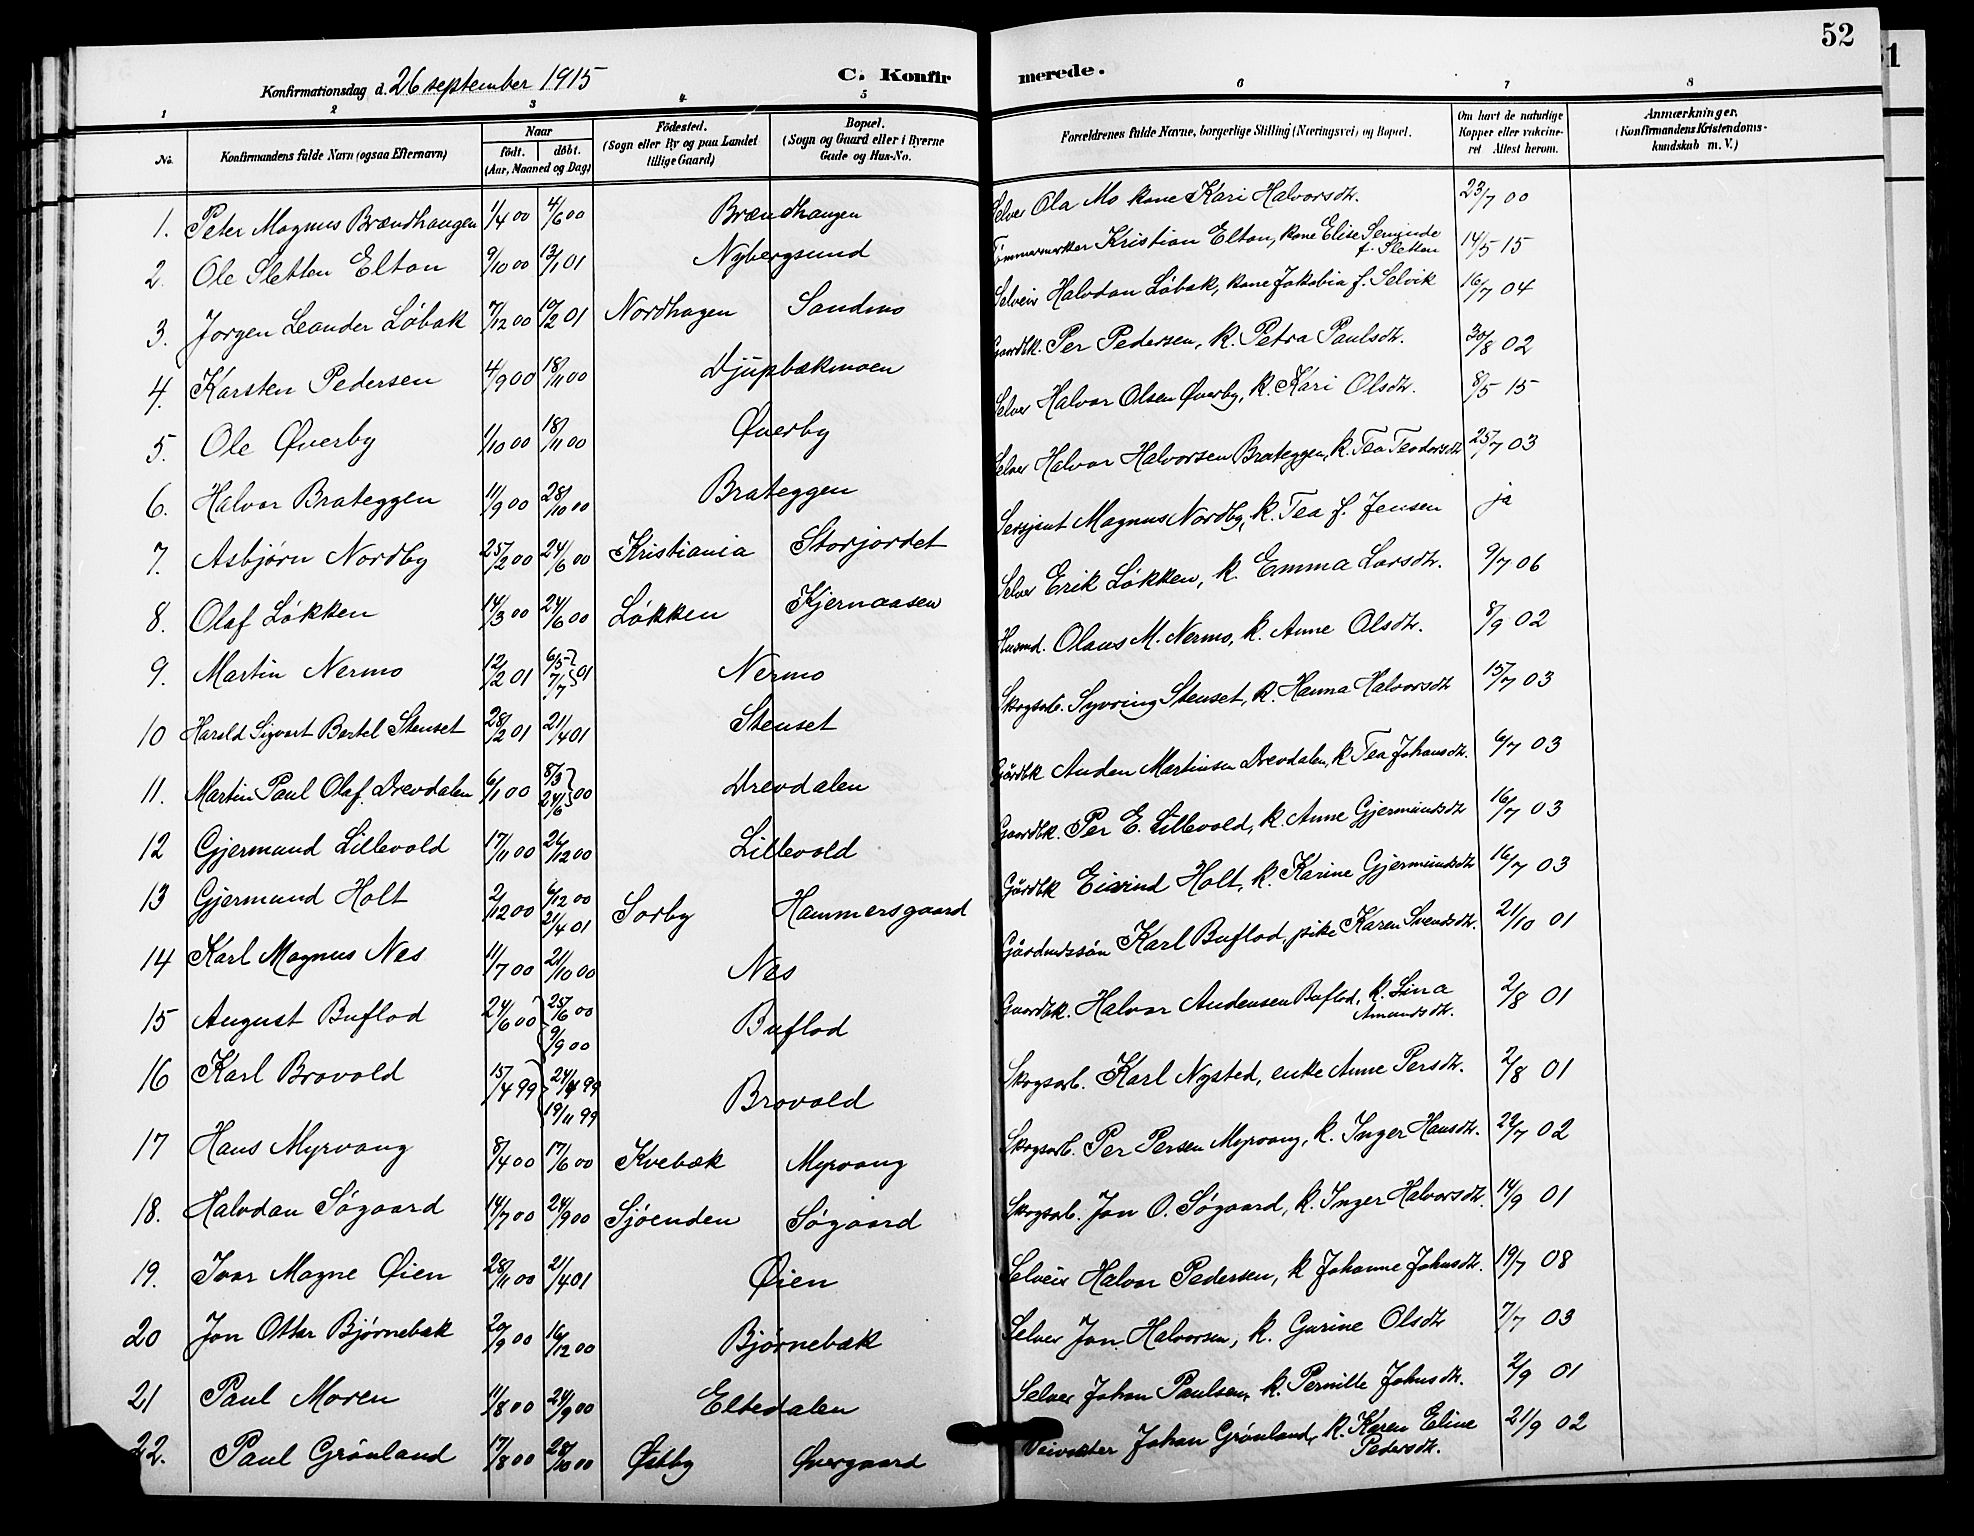 52
Konfirmationsdag d. 26 september 1915
C. Konfirmerede.
1 2 3 4 5 6 7 8
No. Konfirmandens fulde Navn (ogsaa Efternavn) Naar født. døbt. (Aar, Maaned og Dag) Födested. (Sogn eller By og paa Landet tillige Gaard) Bopæl. (Sogn og Gaard eller i Byerne Gade og Hus-No. Forældrenes fulde Navne, borgerlige Stilling (Næringsvei) og Bopæl. Om havt de naturlige Kopper eller vakcineret Attest herom. Anmærkninger. (Konfirmandens Kristendomskundskab m. V.)
1. Peter Magnus Brændhaugen 1/4 00 4/6 00 Brændhaugen Selver Ola Mo kone Kari Halvorsdtr. 23/7 00
2. Ole Sletten Elton 9/10 00 13/1 01 Nybergsund Tømmermerker Kristian Elton, kone Elise f. Sletten 14/5 15
3. Jorgen Leander Løbak 7/12 00 10/2 01 Nordhagen Sandmo Selveir Halvdan Løbak, kone Jakobia f. Selvik 16/7 04
4. Karsten Pedersen 4/9 00 18/11 00 Djupbækmoen Gaardbk. Per Pedersen, k. Petra Paulsdtr. 30/8 02
5. Ole Øverby 1/10 00 18/11 00 Øverby Selver Halvor Olsen Øverby, k. Kari Olsdtr. 8/5 15
6. Halvor Brateggen 11/9 00 28/10 00 Brateggen Selver Halvor Halvorsen Brateggen, k. Tea Teodorsdtr 25/7 03
7. Asbjørn Nordby 25/2 00 24/6 00 Kristiania Storjordet Sersjant Magnus Nordby, k. Tea f. Jensen ja
8. Olaf Løkken 14/3 00 24/6 00 Løkken Kjernaasen Selver Erik Løkken, k. Emma Larsdtr. 9/7 06
9. Martin Nermo 12/2 01 6/5 7/7 } 01 Nermo Husmd. Olaus M. Nermo, k. Anne Olsdtr. 8/9 02
10 Harald Sigvart Bertel Stenset 28/2 01 21/4 01 Stenset Skogsarb. Syvring Stenset, k. Hanna Halvorsdtr 15/7 03
11. Martin Paul Olaf Drevdalen 6/1 00 8/3 24/6 } 00 Drevdalen Gårdbk Auden Martinsen Drevdalen, k. Tea Johansdtr. 6/7 03
12 Gjermund Lillevold 17/11 00 26/12 00 Lillevold Gaardbk. Per E. Lillevold, k. Anne Gjermundsdtr 16/7 03
13 Gjermund Holt 2/12 00 6/12 00 21/4 01 Sorby Hammersgaard Gårdbk Eivind Holt, k. Karine Gjermundsdtr 16/7 03
14 Karl Magnus Nes 11/7 00 21/10 00 Nes Gårdmdssön Karl Buflod, pike Karen Svendsdtr. 21/10 01
15 August Buflod 24/6 00 25/6 00 9/9 00 Buflod Gaardbk. Halvor Audensen Buflod, k. Lina Amundsdtr. 2/8 01
16 Karl Brovold 15/4 99 24/4 99 19/11 99 Brovold Skogsarb. Karl Nysted, enke Anne Persdtr. 2/8 01
17 Hans Myrvang 8/4 00 17/6 00 Kvebæk Myrvang Skogsarb. Per Persen Myrvang, k. Inger Hansdtr. 22/7 02
18. Halvdan Søgaard 14/7 00 24/9 00 Sjøenden Søgaard Skogsarb. Jon O. Søgaard, k. Inger Halvorsdtr. 14/9 01
19. Ivar Magne Øien 28/11 00 21/4 01 Øien Selveir Halvor Pedersen, k Johanne Johnsdtr. 19/7 08
20 Jon Ottar Bjørnebæk 20/9 00 16/12 00 Bjørnebæk Selver Jon Halvorsen, k. Gurine Olsdtr 7/7 03
21 Paul Moren 11/8 00 24/9 00 Eltedalen Selver Johan Paulsen, k. Pernille Johnsdtr. 2/9 01
22. Paul Grönland 17/8 00 28/10 00 Østby Øvergaard Veivokter Johan Grönland, k. Karen Eline Pedersdtr. 21/9 02